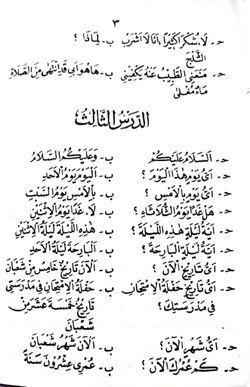 ٣
ح - لَا شُكْرًا كَثِيرًا أَنَا لَا أَشْرَبُ ب - لِمَاذَا ؟
الثَّلْجَ
ح - مَنَعَنِي الطَّبِيْبُ عَنْهُ يَكْفِيْنِي ب - هَاهُوَ أَبِي قَدِ انْتَهَى مِنَ الصَّلَاةِ
مَاءٌ مُغْلًى
الدَّرْسُ الثَّالِثُ
ح - اَلسَّلَامُ عَلَيْكُمْ ب - وَعَلَيْكُمُ السَّلَامُ
ح - أَيُّ يَوْمٍ هٰذَا الْيَوْمُ ؟ ب - اَلْيَوْمُ يَوْمُ الْأَحَدِ
ح - أَيُّ يَوْمٍ بِالْأَمْسِ ؟ ب - بِالْأَمْسِ يَوْمُ السَّبْتِ
ح - هَلْ غَدًا يَوْمُ الثُّلَاثَاءِ ؟ ب - لَا. غَدًا يَوْمُ الْاِثْنَيْنِ
ح - أَيَّةُ لَيْلَةٍ هٰذِهِ اللَّيْلَةُ ؟ ب - هٰذِهِ اللَّيْلَةُ لَيْلَةُ الْاِثْنَيْنِ
ح - أَيَّةُ لَيْلَةٍ الْبَارِحَةَ ؟ ب - اَلْبَارِحَةَ لَيْلَةُ الْأَحَدِ
ح - أَيُّ تَارِيْخٍ اَلْآنَ ؟ ب - اَلْآنَ تَارِيْخُ خَامِسٍ مِنْ شَعْبَانَ
ح - أَيُّ تَارِيْخٍ حَفْلَةُ الْاِمْتِحَانِ ب - حَفْلَةُ الْاِمْتِحَانِ فِي مَدْرَسَتِي
فِي مَدْرَسَتِكَ ؟ تَارِيْخُ خَمْسَةَ عَشَرَ مِنْ
شَعْبَانَ
ح - أَيُّ شَهْرٍ اَلْآنَ ؟ ب - اَلْآنَ شَهْرُ شَعْبَانَ
ح - كَمْ عُمْرُكَ الْآنَ ؟ ب - عُمْرِيْ عِشْرُوْنَ سَنَةً